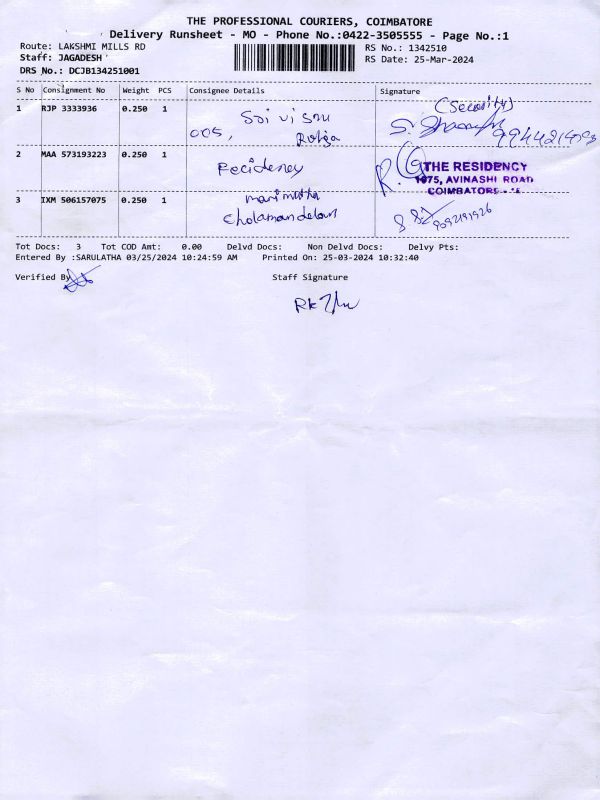 THE PROFESSIONAL COURIERS, COIMBATORE
Delivery Runsheet - MO - Phone No.:0422-3505555 - Page No.:1
Route: LAKSHMI MILLS RD
RS No.: 1342510
Staff: JAGADESH
RS Date: 25-Mar-2024
DRS No.: DCJB134251001
S No Consignment No Weight PCS Consignee Details Signature
1 RJP 3333936 0.250 1
(Security)
005,
2 MAA 573193223 0.250 1
Recideney
THE RESIDENCY
1075, AVINASHI ROAD
COIMBATORE
3 IXM 506157075 0.250 1
marimutha
cholamandelam
9092191926
Tot Docs: 3 Tot COD Amt: 0.00 Delvd Docs: Non Delvd Docs: Delvy Pts:
Entered By :SARULATHA 03/25/2024 10:24:59 AM Printed On: 25-03-2024 10:32:40
Verified By
Staff Signature